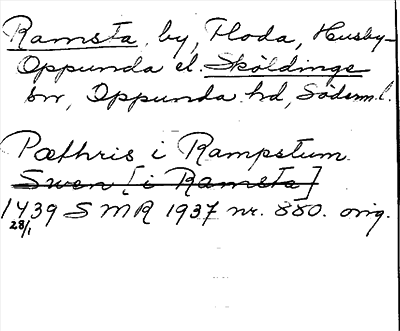 Ramsta, by, Floda, Husby-
Oppunda el. Sköldinge
snr, Oppunda hd, Söderml.
Pæthris i Rampstum
Swen [i Ramsta]
1439 SMR 1937 nr. 880. orig.
28/1